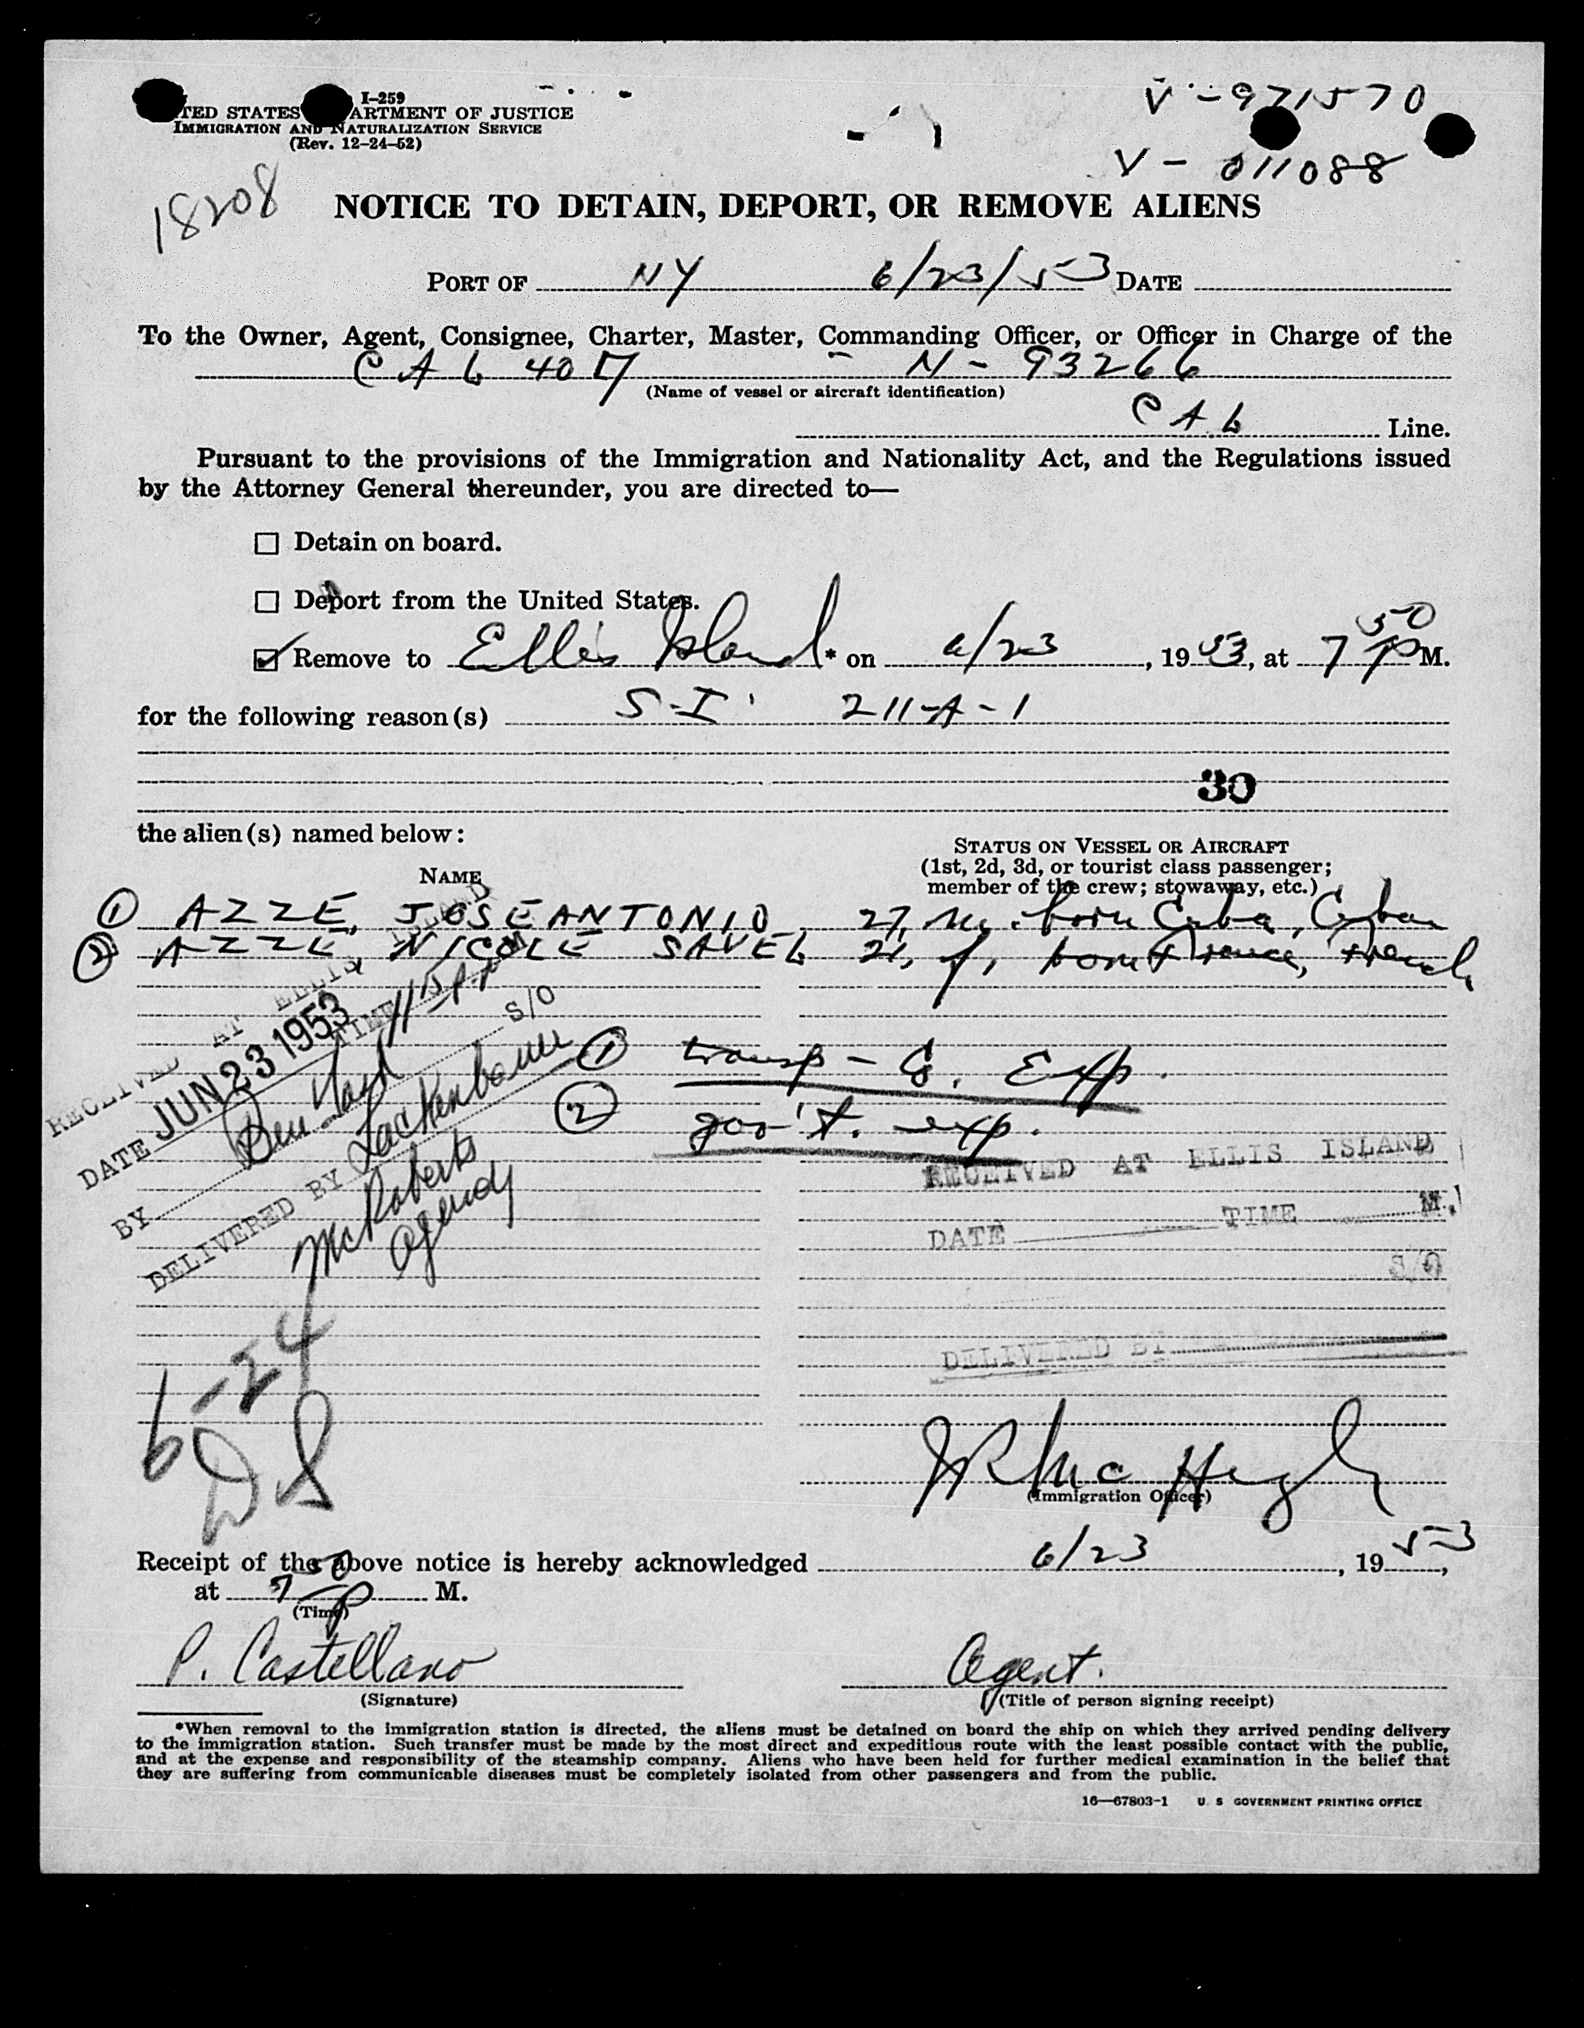 I-259
TED STATES ARTMENT OF JUSTICE
IMMIGRATION AND NATURALIZATION SERVICE
(Rev. 12-24-52)
V - 971570
V - 011088
18208
NOTICE TO DETAIN, DEPORT, OR REMOVE ALIENS
PORT OF NY 6/23/53 DATE
To the Owner, Agent, Consignee, Charter, Master, Commanding Officer, or Officer in Charge of the
C A L 407 - N - 93266
(Name of vessel or aircraft identification)
C A L Line.
Pursuant to the provisions of the Immigration and Nationality Act, and the Regulations issued
by the Attorney General thereunder, you are directed to—
Detain on board.
Deport from the United States.
Remove to Ellis Island* on 6/23, 1953, at 7 50 P M.
for the following reason(s) S-I 211-A-1
30
the alien(s) named below:
STATUS ON VESSEL OR AIRCRAFT
(1st, 2d, 3d, or tourist class passenger;
member of the crew; stowaway, etc.)
NAME
1 AZZE, JOSE ANTONIO, 27, M, born Cuba, Cuban
2 AZZE NICOLE SAVEL 21, f, born France, French
RECEIVED AT ELLIS ISLAND
DATE JUN 23 1953 TIME 1115 P M
BY S/O
DELIVERED BY Lackenbauer
McRoberts
agency
1 transp - G. Exp.
2 gov't. exp.
RECEIVED AT ELLIS ISLAND
DATE TIME M.
S/O
DELIVERED BY
6-24
DS
McHugh
(Immigration Officer)
Receipt of the above notice is hereby acknowledged 6/23, 1953,
at 7 50 P M.
(Time)
P. Castellano
Agent.
(Signature)
(Title of person signing receipt)
*When removal to the immigration station is directed, the aliens must be detained on board the ship on which they arrived pending delivery
to the immigration station. Such transfer must be made by the most direct and expeditious route with the least possible contact with the public,
and at the expense and responsibility of the steamship company. Aliens who have been held for further medical examination in the belief that
they are suffering from communicable diseases must be completely isolated from other passengers and from the public.
16—67803-1 U. S GOVERNMENT PRINTING OFFICE